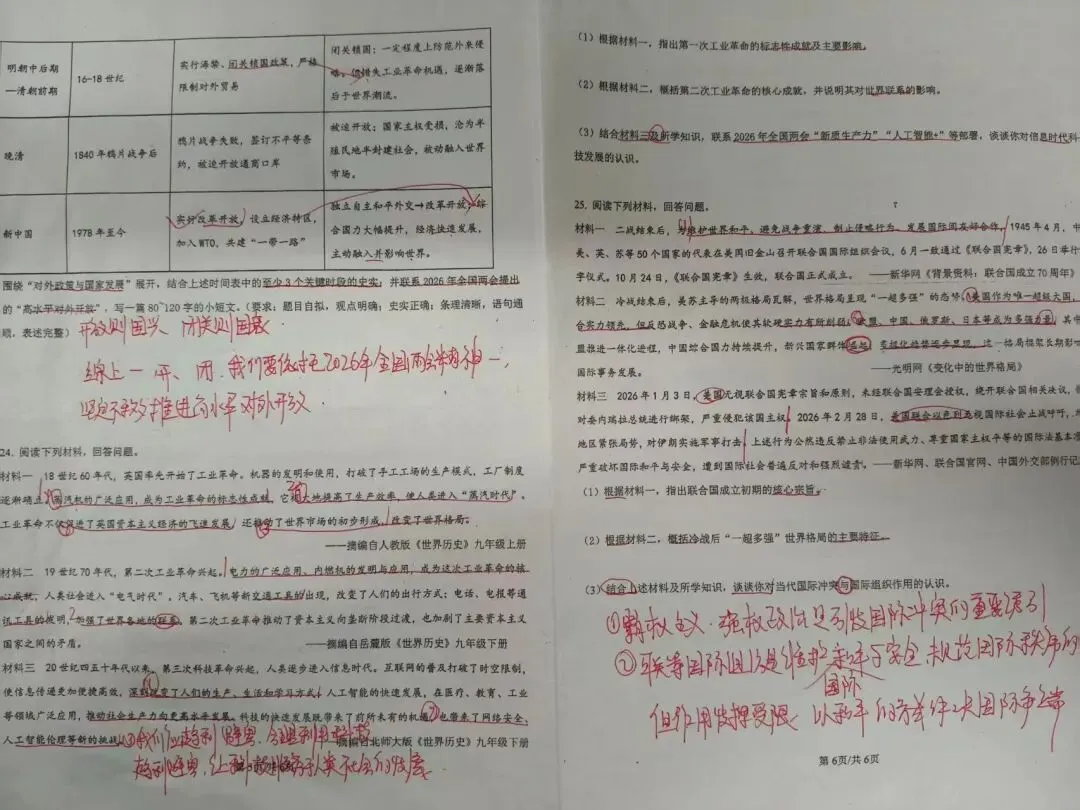 明朝中后期
—清朝前期
16-18世纪
实行海禁、闭关锁国政策，严格
限制对外贸易
闭关锁国：一定程度上防范外来侵
略，但错失工业革命机遇，逐渐落
后于世界潮流。
晚清
1840年鸦片战争后
鸦片战争失败，签订不平等条
约，被迫开放通商口岸
被迫开放：国家主权受损，沦为半
殖民地半封建社会，被动融入世界
市场。
新中国
1978年至今
实行改革开放，设立经济特区，
加入WTO，共建“一带一路”
独立自主和平外交→改革开放：综
合国力大幅提升，经济快速发展，
主动融入并影响世界。
围绕“对外政策与国家发展”展开，结合上述时间表中的至少3个关键时段的史实，并联系2026年全国两会提出
的“高水平对外开放”，写一篇80~120字的小短文。（要求：题目自拟，观点明确；史实正确；条理清晰，语句通
顺，表述完整）
开放则国兴 闭关则国衰
综上 一开、一闭 我们要依托2026年全国两会精神
坚定不移推进高水平对外开放
24. 阅读下列材料，回答问题。
材料一 18世纪60年代，英国率先开始了工业革命。机器的发明和使用，打破了手工工场的生产模式，工厂制度
逐渐确立。蒸汽机的广泛应用，成为工业革命的标志性成就，它极大地提高了生产效率，使人类进入“蒸汽时代”。
工业革命不仅促进了英国资本主义经济的飞速发展，还推动了世界市场的初步形成，改变了世界格局。
——摘编自人教版《世界历史》九年级上册
材料二 19世纪70年代，第二次工业革命兴起。电力的广泛应用、内燃机的发明与应用，成为这次工业革命的核
心成就，人类社会进入“电气时代”。汽车、飞机等新交通工具的出现，改变了人们的出行方式；电话、电报等通
讯工具的发明，加强了世界各地的联系。第二次工业革命推动了资本主义向垄断阶段过渡，也加剧了主要资本主义
国家之间的矛盾。
——摘编自岳麓版《世界历史》九年级下册
材料三 20世纪四五十年代以来，第三次科技革命兴起，人类逐步进入信息时代。互联网的普及打破了时空限制，
使信息传递更加便捷高效，深刻改变了人们的生产、生活和学习方式；人工智能的快速发展，在医疗、教育、工业
等领域广泛应用，推动社会生产力向更高水平发展。科技的快速发展既带来了前所未有的机遇，也带来了网络安全、
人工智能伦理等新的挑战。
——摘编自北师大版《世界历史》九年级下册
③我们应趋利避害，合理利用科技
趋利避害，让科技
（1）根据材料一，指出第一次工业革命的标志性成就及主要影响。
（2）根据材料二，概括第二次工业革命的核心成就，并说明其对世界联系的影响。
（3）结合材料三及所学知识，联系2026年全国两会“新质生产力”“人工智能+”等部署，谈谈你对信息时代科
技发展的认识。
25. 阅读下列材料，回答问题。
材料一 二战结束后，为维护世界和平，避免战争重演，制止侵略行为、发展国际间友好合作，1945年4月，中
美、英、苏等50个国家的代表在美国旧金山召开联合国国际组织会议，6月一致通过《联合国宪章》，26日举行
字仪式。10月24日，《联合国宪章》生效，联合国正式成立。
——新华网《背景资料：联合国成立70周年》
材料二 冷战结束后，美苏主导的两极格局瓦解，世界格局呈现“一超多强”的态势。美国作为唯一超级大国，
合实力领先，但反恐战争、金融危机使其软硬实力有所削弱；欧盟、中国、俄罗斯、日本等成为多强力量，其中
盟推进一体化进程，中国综合国力持续提升，新兴国家群体崛起，多极化趋势逐步显现，这一格局框架长期影响
国际事务发展。
——光明网《变化中的世界格局》
材料三 2026年1月3日，美国无视联合国宪章宗旨和原则，未经联合国安理会授权，绕开联合国相关决议，
对委内瑞拉总统进行绑架，严重侵犯该国主权。2026年2月28日，美国联合以色列无视国际社会止战呼吁，
地区紧张局势，对伊朗实施军事打击。上述行为公然违反禁止非法使用武力、尊重国家主权平等的国际法基本准
严重破坏国际和平与安全，遭到国际社会普遍反对和强烈谴责。——新华网、联合国官网、中国外交部例行记
（1）根据材料一，指出联合国成立初期的核心宗旨。
（2）根据材料二，概括冷战后“一超多强”世界格局的主要特征。
（3）结合上述材料及所学知识，谈谈你对当代国际冲突与国际组织作用的认识。
①霸权主义、强权政治是引发国际冲突的重要诱引
②联合国等国际组织是维护和平与安全、规范国际秩序的
国际
但作用发挥受限 以和平的方式解决国际争端
第6页/共6页